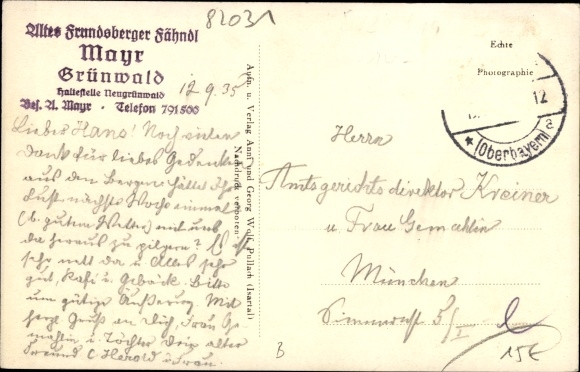 82031
Altes Frundsberger Fähndl
Mayr
Grünwald
Haltestelle Neugrünwald
Bes. A. Mayr · Telefon 791500
12.9.35
Liebes Hans! Noch vielen
Dank für liebes Gedenken
aus den Bergen. Hättet Ihr
Lust nächste Woche einmal
(b. gutem Wetter) mit uns
da heraus zu pilgern? Es ist
sehr nett da u. Alles sehr
gut, Kafi u. Gebäck. Bitte
um gütige Äußerung. Mit
herzl. Gruß an Dich, Frau Ge-
mahlin u. Töchter Dein alter
Freund C. Herold u. Frau.
Aufn. u. Verlag Anni und Georg Wolf, Pullach (Isartal)
Nachdruck verboten
Echte
Photographie
12
* (Oberbayern) a
Herrn
Amtsgerichtsdirektor Kreiner
u. Frau Gemahlin
München
5/I
B
15€